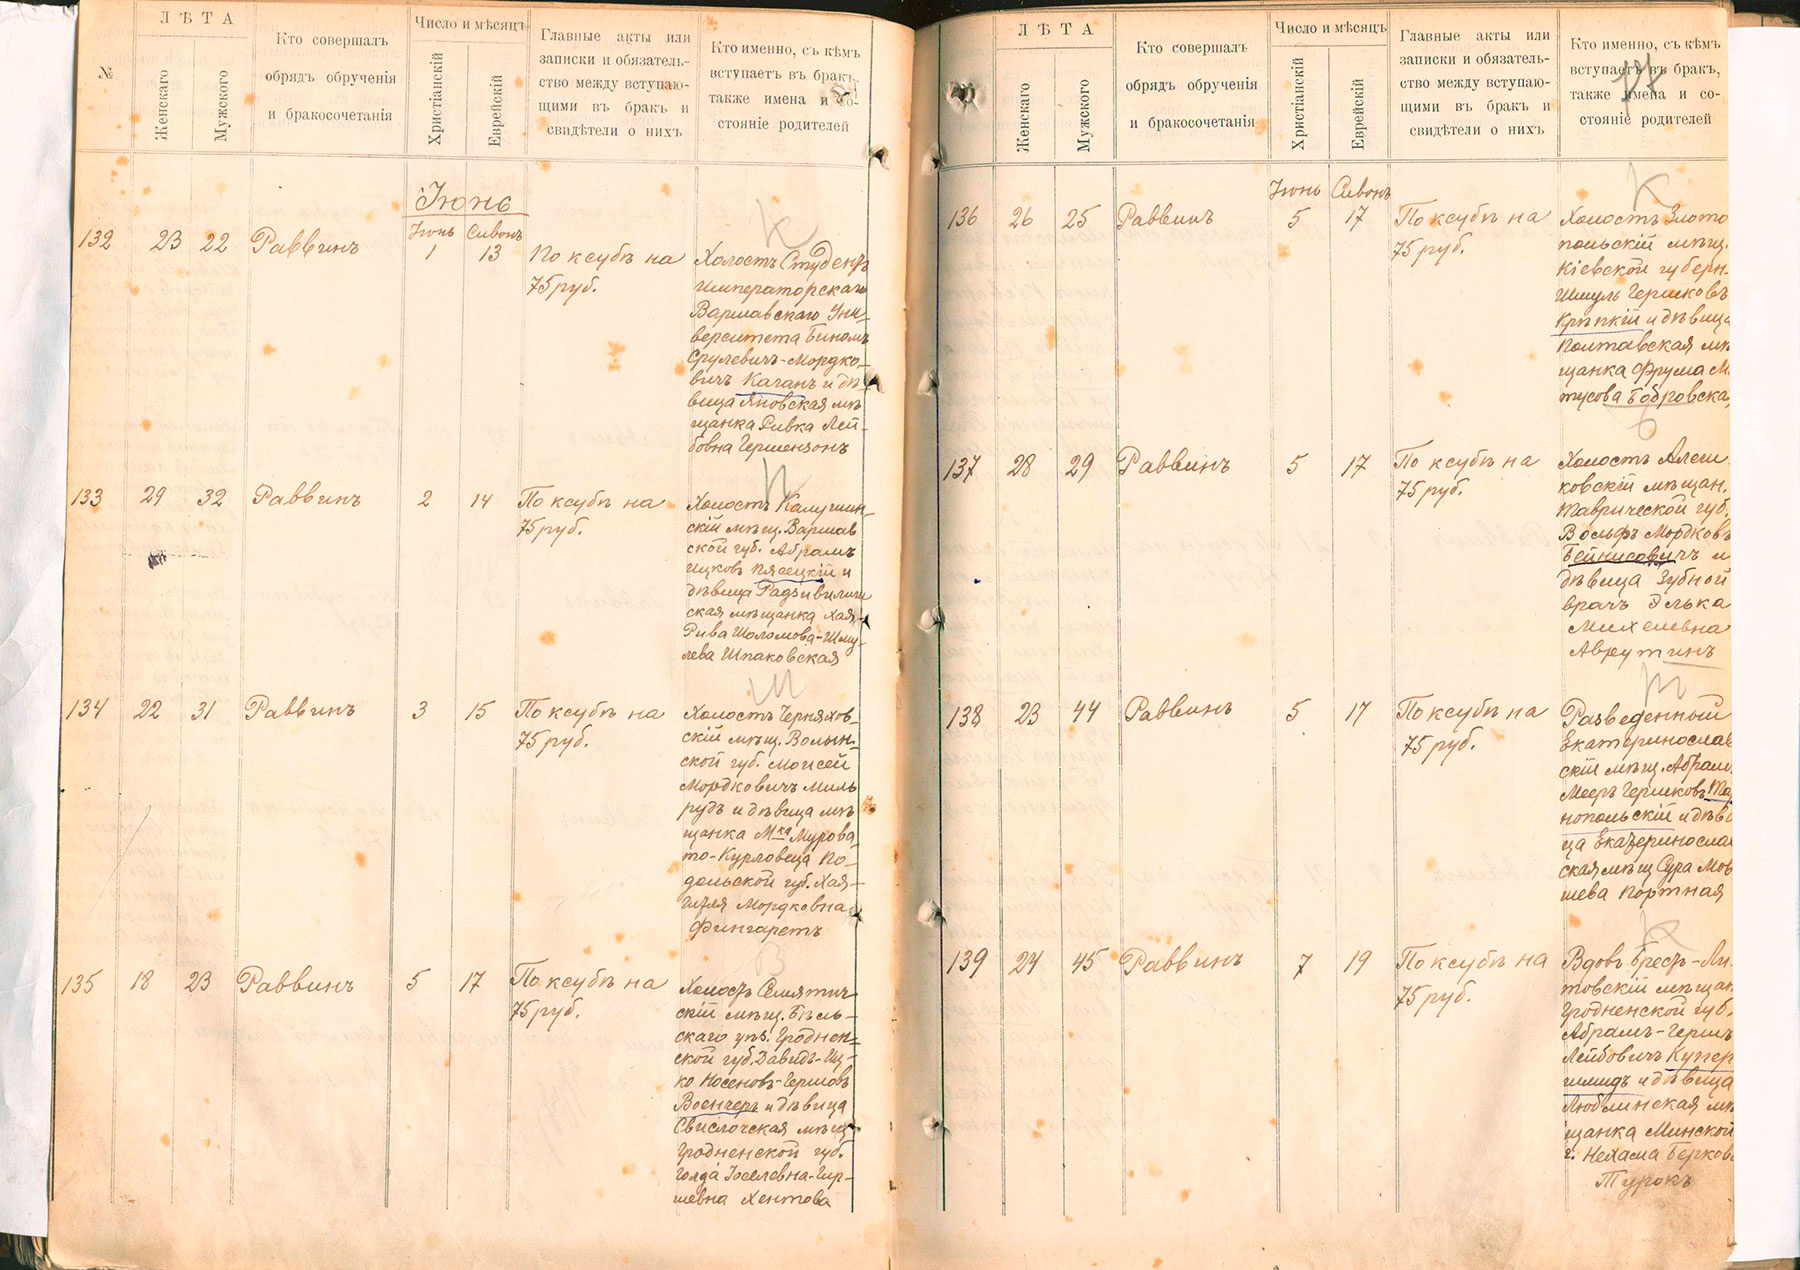 №
ЛѢТА
Женскаго
Мужского
Кто совершалъ
обрядъ обрученія
и бракосочетанія
Число и мѣсяцъ
Христіанскій
Еврейскій
Главные акты или
записки и обязатель-
ство между вступаю-
щими въ бракъ и
свидѣтели о нихъ
Кто именно, съ кѣмъ
вступаетъ въ бракъ,
также имена и со-
стояніе родителей
Іюнь
Іюнь Сивонъ
132 23 22 Раввинъ 1 13 По ксубѣ на
75 руб.
Холостъ Студентъ
Императорскаго
Варшавскаго Уни-
верситета Биномъ
Срулевичъ-Мордко-
вичъ Каганъ и дѣ-
вица Яновская мѣ
щанка Ривка Лей-
бовна Гершензонъ
133 29 32 Раввинъ 2 14 По ксубѣ на
75 руб.
Холостъ Калушин-
скій мѣщ. Варшав
ской губ. Абрамъ
Ицковъ Пясецкій и
дѣвица Радзивилиш
ская мѣщанка Хая-
Рива Шоломова-Шму-
лева Шпаковская
134 22 31 Раввинъ 3 15 По ксубѣ на
75 руб.
Холостъ Черняхов-
скій мѣщ. Волын-
ской губ. Моисей
Мордковичъ Миль
рудъ и дѣвица мѣ
щанка Мка Мурова
то-Курловеца По-
дольской губ. Хая-
Гитля Мордковна
Фингаретъ
135 18 23 Раввинъ 5 17 По ксубѣ на
75 руб.
Холостъ Семятич
скій мѣщ. Бѣль-
скаго уѣз. Гроднен-
ской губ. Давидъ-Иц-
ко Носеновъ-Гершовъ
Военчеръ и дѣвица
Свислочская мѣщ.
Гродненской губ.
Голда Іоселевна-Гир-
шевна Хентова
ЛѢТА
Женскаго
Мужского
Кто совершалъ
обрядъ обрученія
и бракосочетанія
Число и мѣсяцъ
Христіанскій
Еврейскій
Главные акты или
записки и обязатель-
ство между вступаю-
щими въ бракъ и
свидѣтели о нихъ
Кто именно, съ кѣмъ
вступаетъ въ бракъ,
также имена и со-
стояніе родителей
77
Іюнь Сивонъ
136 26 25 Раввинъ 5 17 По ксубѣ на
75 руб.
Холостъ Злото
польскій мѣщ.
Кіевской губерн.
Шмуль Гершковъ
Крѣпкій и дѣвица
Полтавская мѣ
щанка Фрума М
тусова Бобровска
137 28 29 Раввинъ 5 17 По ксубѣ на
75 руб.
Холостъ Алеш
ковскій мѣщан.
Таврической губ.
Вольфъ Мордковъ
Бейнисовичъ и
дѣвица Зубной
врачъ Элька
Михелевна
Аврутинъ
138 23 44 Раввинъ 5 17 По ксубѣ на
75 руб.
Разведенный
Екатеринослав
скій мѣщ. Абрам
Мееръ Гершковъ Тар
нопольскій и дѣви
ца Екатеринослав
ская мѣщ Сура Мов
шева Портная
139 24 45 Раввинъ 7 19 По ксубѣ на
75 руб.
Вдовъ Брестъ-Ли-
товскій мѣщан
Гродненской губ.
Абрамъ-Гершъ
Лейбовичъ Купер
шмидъ и дѣвица
Люблинская мѣ
щанка Минской
г. Нехама Берков
Турокъ